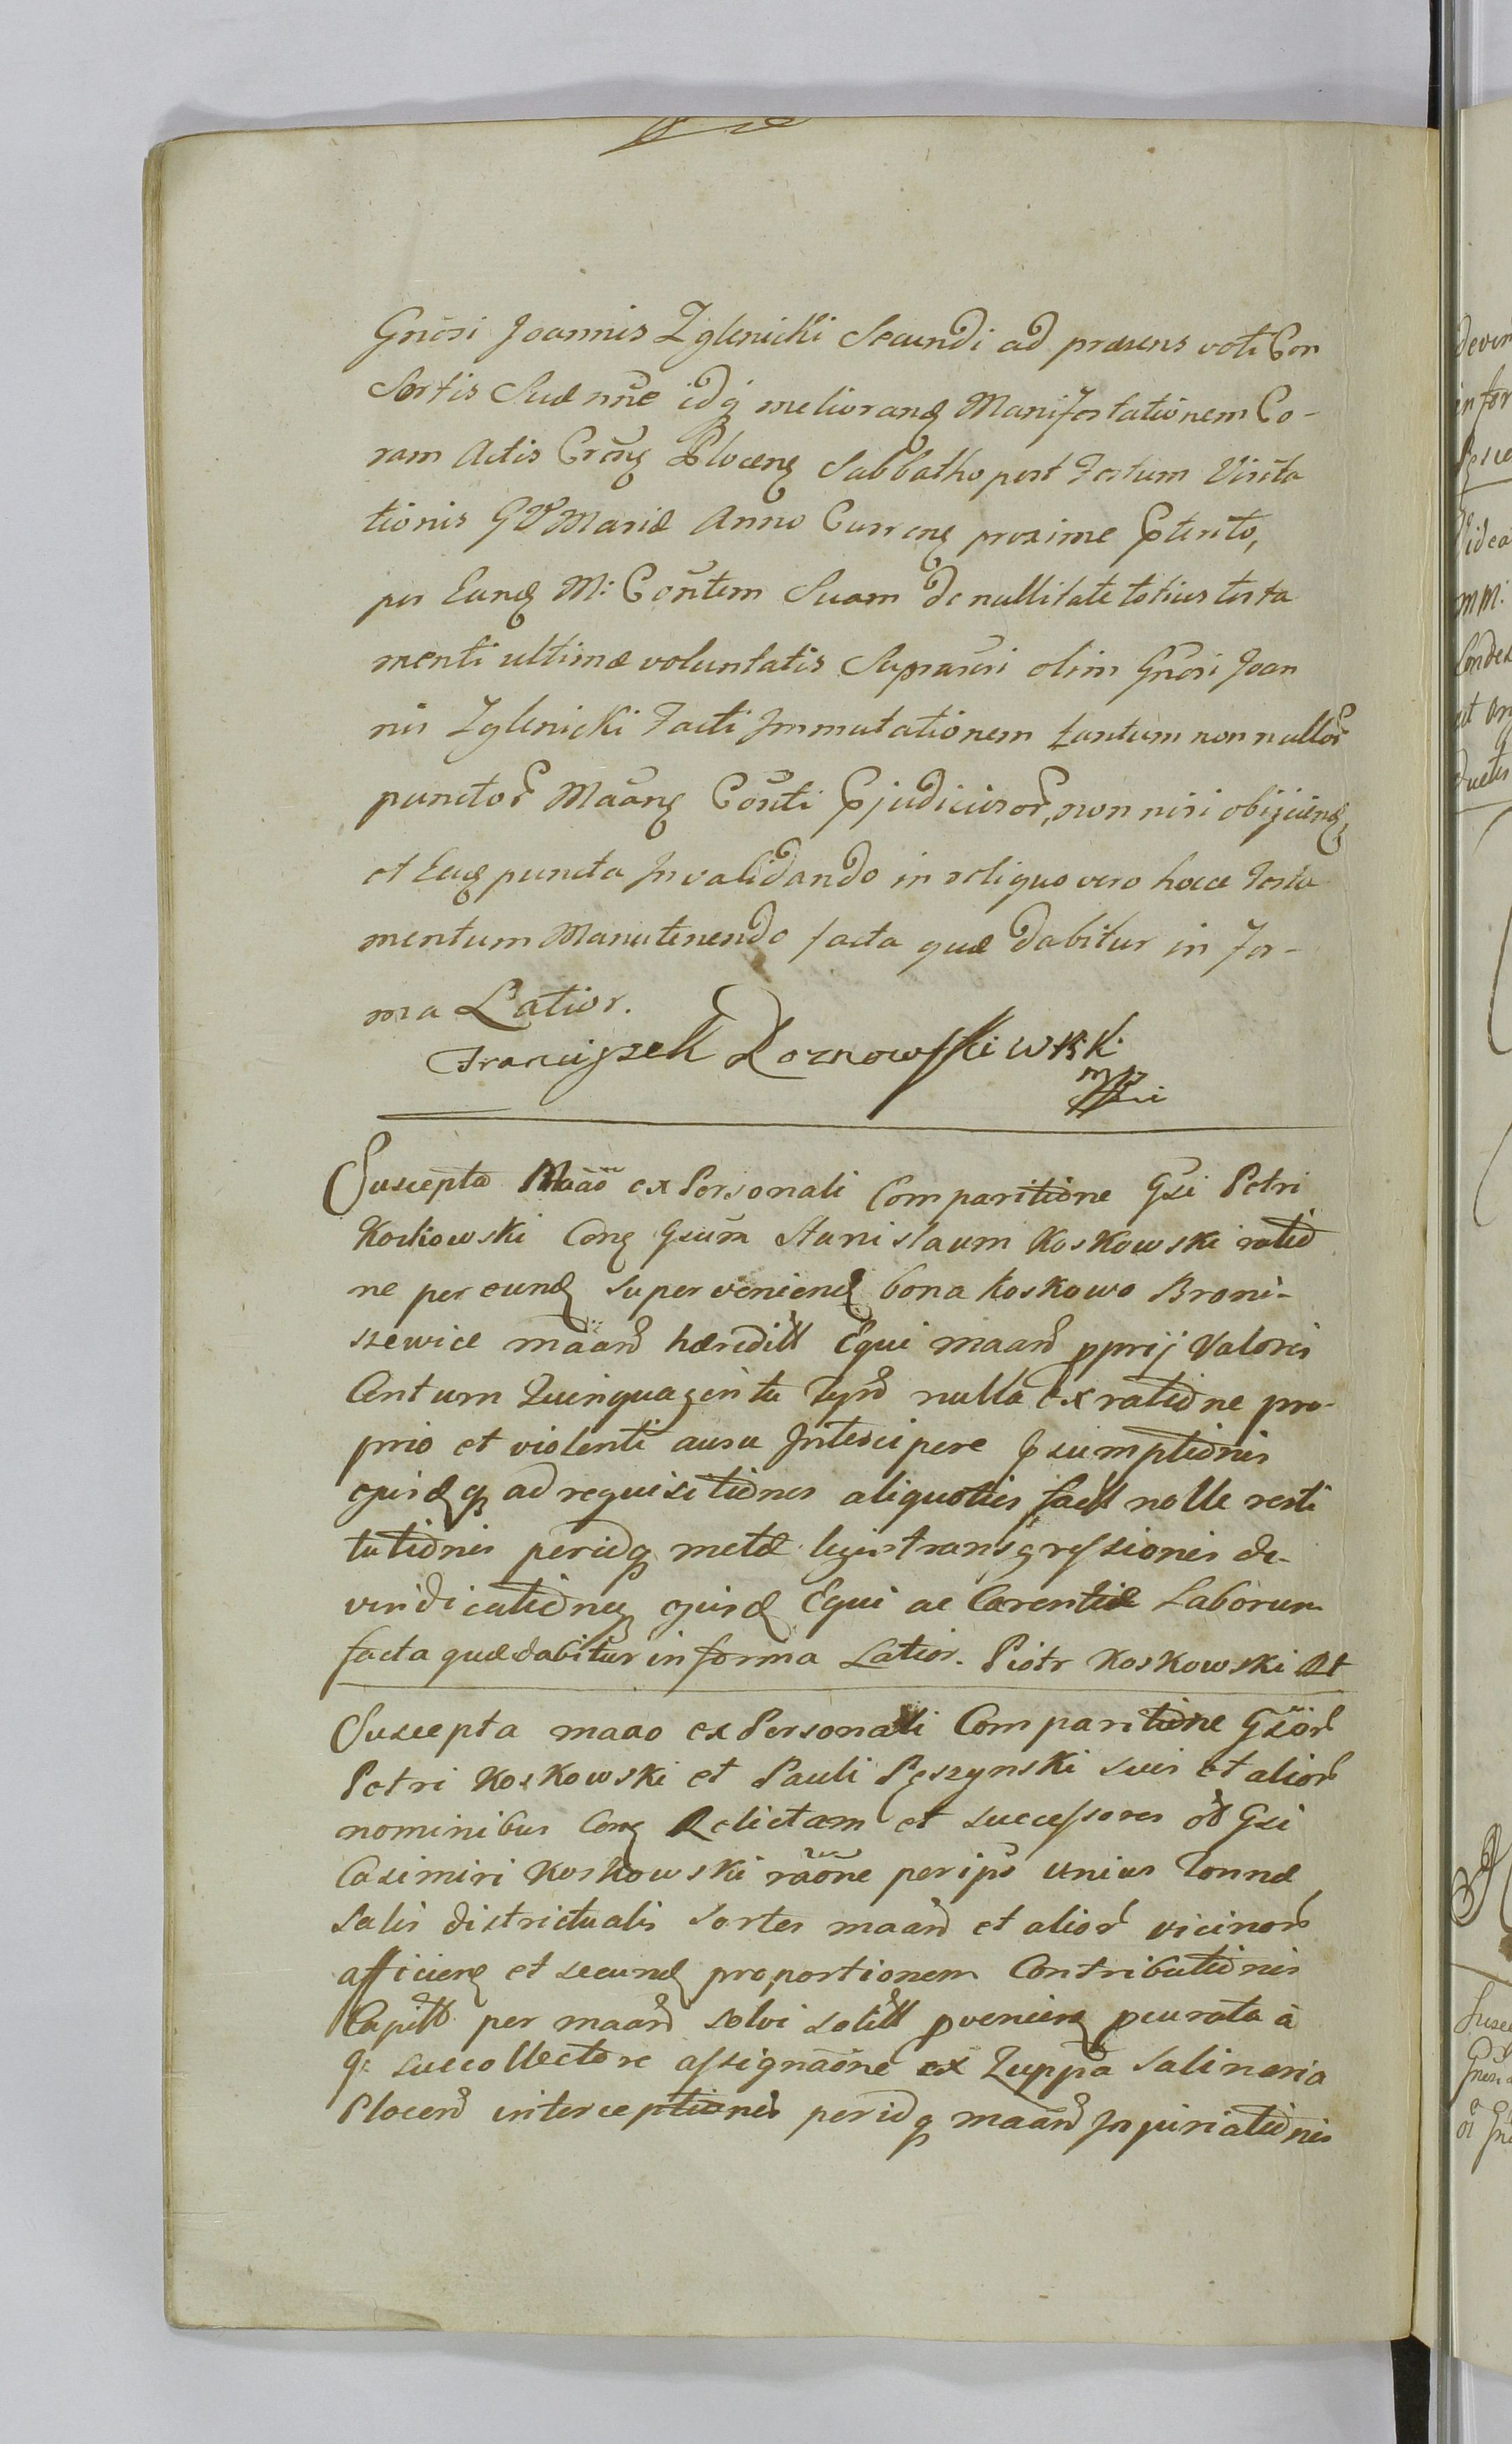 Gnōsi Joannis Zglenicki Secundi ad præsens voti Con
Sortis Suæ nñe idq meliorang Manifestationem Co-
ram Actis Creng Plocens Sabbatho post Festum Visita
tionis GV Mariæ Anno Curreng proxime Pterito,
per Eand M: Contem Suam de nullitate totius testa
menti ultimæ voluntatis Suprascri olim Gnōsi Joan
nis Zglenicki Facti Immutationem tantum non nullor
punctor Maang Conti Pjudiciosor, non nisi obijciend,
et Eag puncta Invalidando in reliquo vero hocce Testa
mentum Manutenendo facta quæ dabitur in For-
ma Latior.
Franciszek
mp
Suscepta Maaō ex Personali Comparitiōne Gsi Petri
Koskowski Cong Gsum Stanislaum Koskowski ratiō
ne per eund superveniend bona Koskowo Broni-
szewice maan hæredill Equi maan pprij Valoris
Centum Quinquaginta Tynf nulla ex ratiōne pro-
prio et violenti ausu Intercipere Psumptiōnis
ejusdq ad requisitiōnes aliquoties fact nolle resti
tutiōnis peridq metæ legis transgressionis de-
vindicatiōneq ejusd Equi ac Carentiæ Laborum
facta quæ dabitur in forma Latior. Piotr Koskowski
Suscepta maao ex Personali Comparitiōne Gsōr
Petri Koskowski et Pauli Pęszynski suis et alior
nominibus Cong Relictam et successores od Gsi
Casimiri Koskowski raōne per ips unius Tonnæ
Salis districtualis sortes maan et alior vicinor
afficieng et secund proportionem Contributiōnis
Capitls per maan solvi solitll pvenieng pcurata à
q: succollectore assignaōne ex Zuppa Salinaria
Plocen interceptionis peridq maan Injuriatiōnis